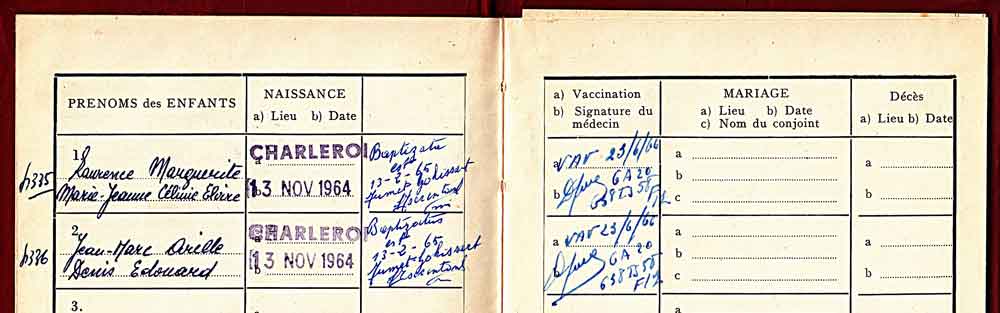 PRENOMS des ENFANTS
NAISSANCE
a) Lieu b) Date
1.
Laurence Marguerite
Marie-Jeanne Céline Elvire
CHARLEROI
13 NOV 1964
Baptizata
est
13-2-65
2.
Jean-Marc
Denis Edouard
CHARLEROI
13 NOV 1964
Baptizatus
est
13-2-65
3.
a) Vaccination
b) Signature du
médecin
MARIAGE
a) Lieu b) Date
c) Nom du conjoint
Décès
a) Lieu b) Date
a
VAV 23/6/66
b
GA 20
a
b
c
a
b
a
VAV 23/6/66
b
GA 20
a
b
c
a
b
a